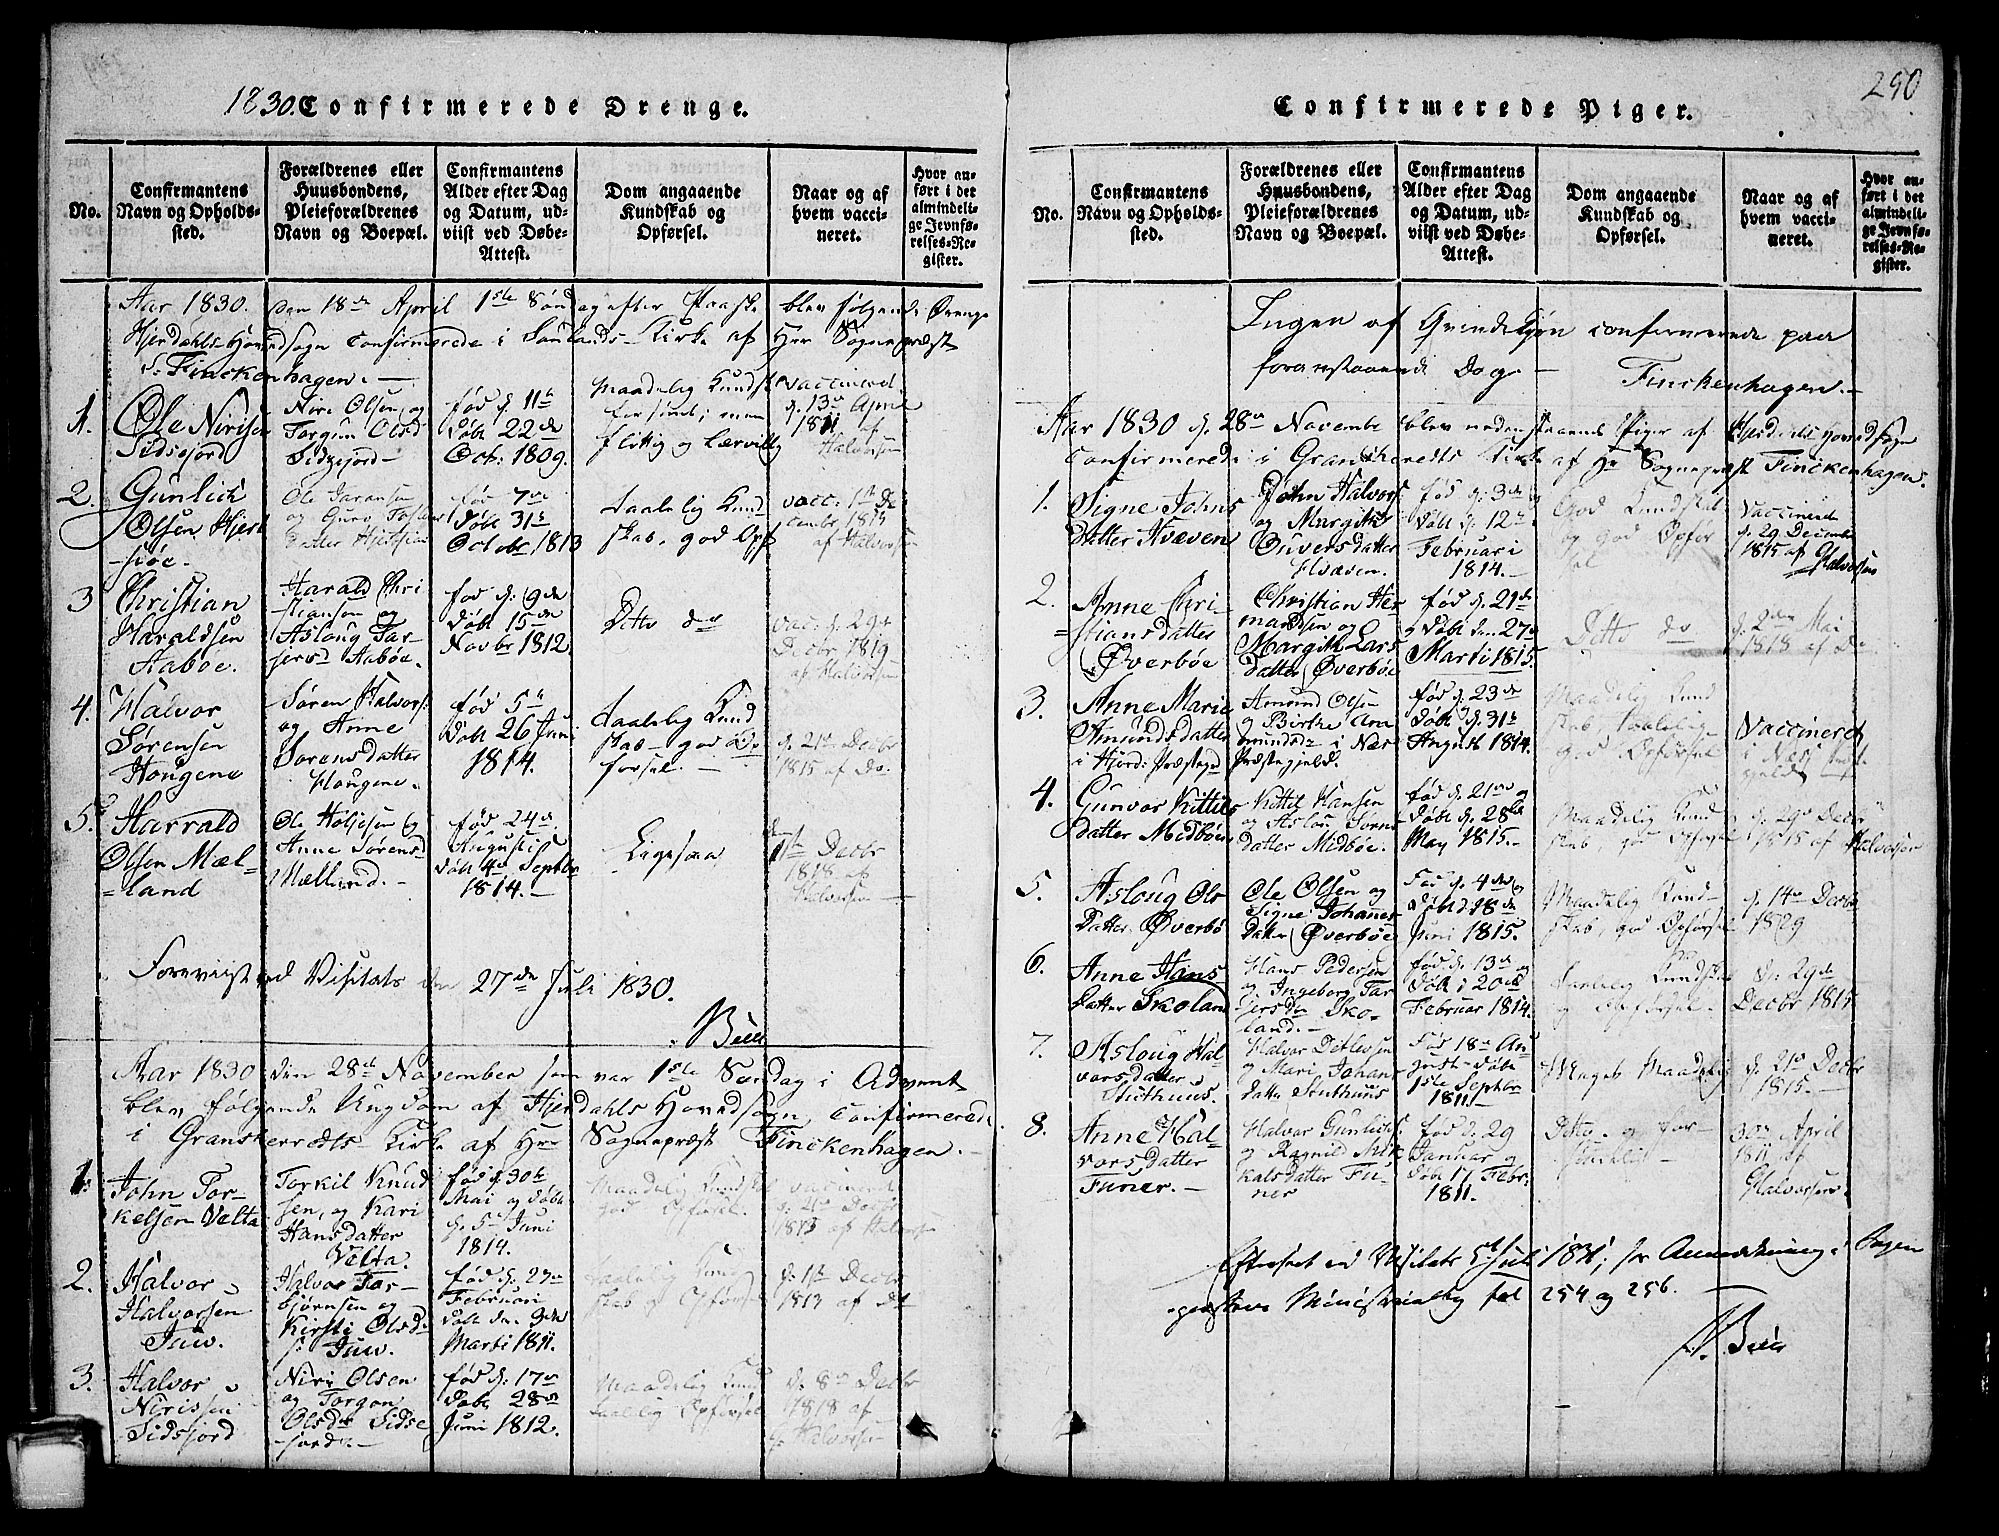 1830. Confirmerede Drenge.
No.
Confirmantens
Navn og Opholds-
sted.
Forældrenes eller
Huusbondens,
Pleieforældrenes
Navn og Boepæl.
Confirmantens
Alder efter Dag
og Datum, ud-
viist ved Døbe-
Attest.
Dom angaaende
Kundskab og
Opførsel.
Naar og af
hvem vacci-
neret.
Hvor an-
ført i det
almindeli-
ge Jevnfø-
relses-Re-
gister.
Aar 1830. den 18de April 1ste Søndag efter Paaske blev følgende Drenge
Hjerdahls Hovedsogn confirmerede i Soulands Kirke af Hr Sognepræst
Finckenhagen.
1.
Ole Nirisen
Sidsejord
Niri Olsen og
Torgun Olsd
Sidsejord
fød d. 11te
Døbt 22de
Oct: 1809.
Maadelig Kundsk
flittig og Lærvillig
vaccinered
d. 13de April
1811 af
Halvorsen
2.
Gunleich
Olsen Hjerd
siøe.
fød 7de
Døbt 31te
Octobr 1813
Taalelig Kund
skab, god Opf
vacc: 1ste De
cembr 1815
af Halvorsen
3
Christian
Haraldsen
Aaboe.
Harald Chri
stiansen og
Asloug Tar-
jersd Aabøe.
fød d: 9de
Døbt 15de
Novbr 1812
Ditto do
vac: d. 29de
Decbr 1819
af Halvorsen
4.
Halvor
Sørensen
Hougene
Søren Halvors:
og Anne
Sorensdatter
Hougene.
fød 5te
Døbt 26 Juni
1814.
Taalelig Kund
skab - god Op
førsel.
d. 21de Decbr
1815 af Do.
5.
Harrald
Olsen Mæl-
land
Ole Holjesen og
Anne Sørensd
Mælland.
fød 24de
Augusti
Døbt 4de Septbr
1814.
Ligesaa
1ste Decbr
1818 af
Halvorsen
Foreviist ved Visitats den 27de Juli 1830.
Aar 1830 den 28de November som var 1ste Søndag i Advent
blev følgende Ungdom af Hjerdahls Hovedsogn confirmerede
i Gransherredts Kirke af Hr Sognepræst Finckenhagen.
1.
John Tor-
kelsen Velta
Torkil Knud
sen, og Kari
Hansdatter
Velta.
fød d. 30te
Mai og døbt
d. 5te Juni
1814.
Maadelig Kundskab
god Opførsel.
vaccinered
d. 21de Decbr
1813 af Halvorsen
2.
Halvor
Halvorsen
Juw.
Halvor Tor-
bjørnsen og
Kirsti Olsd.
Juw.
fød d: 27de
Februari
døbt den 9de
Marti 1811.
Taalelig Kund
skab og Opførsel
d. 1ste Decbr
1813 af Do
3.
Halvor
Nirissen
Sidsjord
Niri Olsen
og Torgon
Olsdtr Sidse
jord.
fød d. 17de
døbt 28de
Juni 1812.
Maadelig Kund
Taalelig Opførsel
d. 8de Decbr
1818 af
Halvorsen
290
Confirmerede Piger.
No.
Confirmantens
Navn og Opholds-
sted.
Forældrenes eller
Huusbondens,
Pleieforældrenes
Navn og Boepæl.
Confirmantens
Alder efter Dag
og Datum, ud-
viist ved Døbe-
Attest.
Dom angaaende
Kundskab og
Opførsel.
Naar og af
hvem vacci-
neret.
Hvor an-
ført i det
almindeli-
ge Jevnfø-
relses-Re-
gister.
Ingen af Qvindekjøn confirmerede paa
foranstaaende Dag - Finckenhagen.
Aar 1830 d. 28de Novembe blev nedenstaaende Piger af Hjerdals Hovedsogn
Confirmerede i Gransherredts Kirke af Hr Sognepræst Finckenhagen.
1.
Signe Johns
datter Hvæven
John Halvors
og Margith
Guversdatter
Hvæven.
fød d. 3de og
Døbt d. 12te
Februari
1814.
God Kundskab
og god Opfør
sel
Vaccineret
d. 29 Decembr
1815 af
Halvorsen
2.
Anne Chri
stiansdatter
Øverbøe
Christian Her
mandsen og
Margith Lars
datter Øverbøe
fød d. 21de
og Døbt den 27de
Marti 1815.
Ditto do
d. 2den Mai
1818 af Do
3.
Anne Marie
Amundsdatter
i Hjerd: Præstegd
Amund Olsen
og Birthe Am
undsdr i Næs
Præstegjeld.
fød d. 23de
Døbt d. 31te
August 1814.
Maadelig Kund
skab, Taalelig
god Opførsel
Vaccineret
i Næss Præst
gjeld
4.
Gunvor Kittils
datter Midbøen
Kittil Hansen
og Aslou Sørns
datter Midbøe.
fød d. 21de og
døbt d. 28de
May 1815.
Maadelig Kund
skab, god Opførsel
d. 29de Decbr
1815 af Halvorsen
5.
Asloug Ols
Datter Øverbø
Ole Olsen og
Signe Johannes
Datter Øverbøe
Fød d. 4de og
døbt d. 18de
Juni 1815.
Maadelig Kund-
skab, god Opførsel
d. 14de Decbr
1829
6.
Anne Hans
Datter Skoland
Hans Pedersen
og Ingeborg Tar
jersdr Sko-
land.
fød d. 13de og
Døbt d. 20de
Februar 1814.
Taalelig Kundskab
og Opførsel.
d. 29de
Decbr 1815
7.
Asloug Hal-
vorsdatter
Stuthuus
Halvor Detlevsen
og Mari Johans
datter Stuthuus
Fød 18de Au
gust døbt
1ste Septbr
1811.
Meget Maadelig
d. 21de Decbr
1815.
8.
Anne Hal-
vorsdatter
Funer.
Halvor Gunleiks
og Ragnild Mik
kalsdatter Fu-
ner
fød d. 29
Januar og
Døbt 17 Febr:
1811.
30te April
1811 af
Halvorsen
Efterseet ved Visitats 5te Juli 1831; Anmærkning i Bogen
fol 254 og 256.